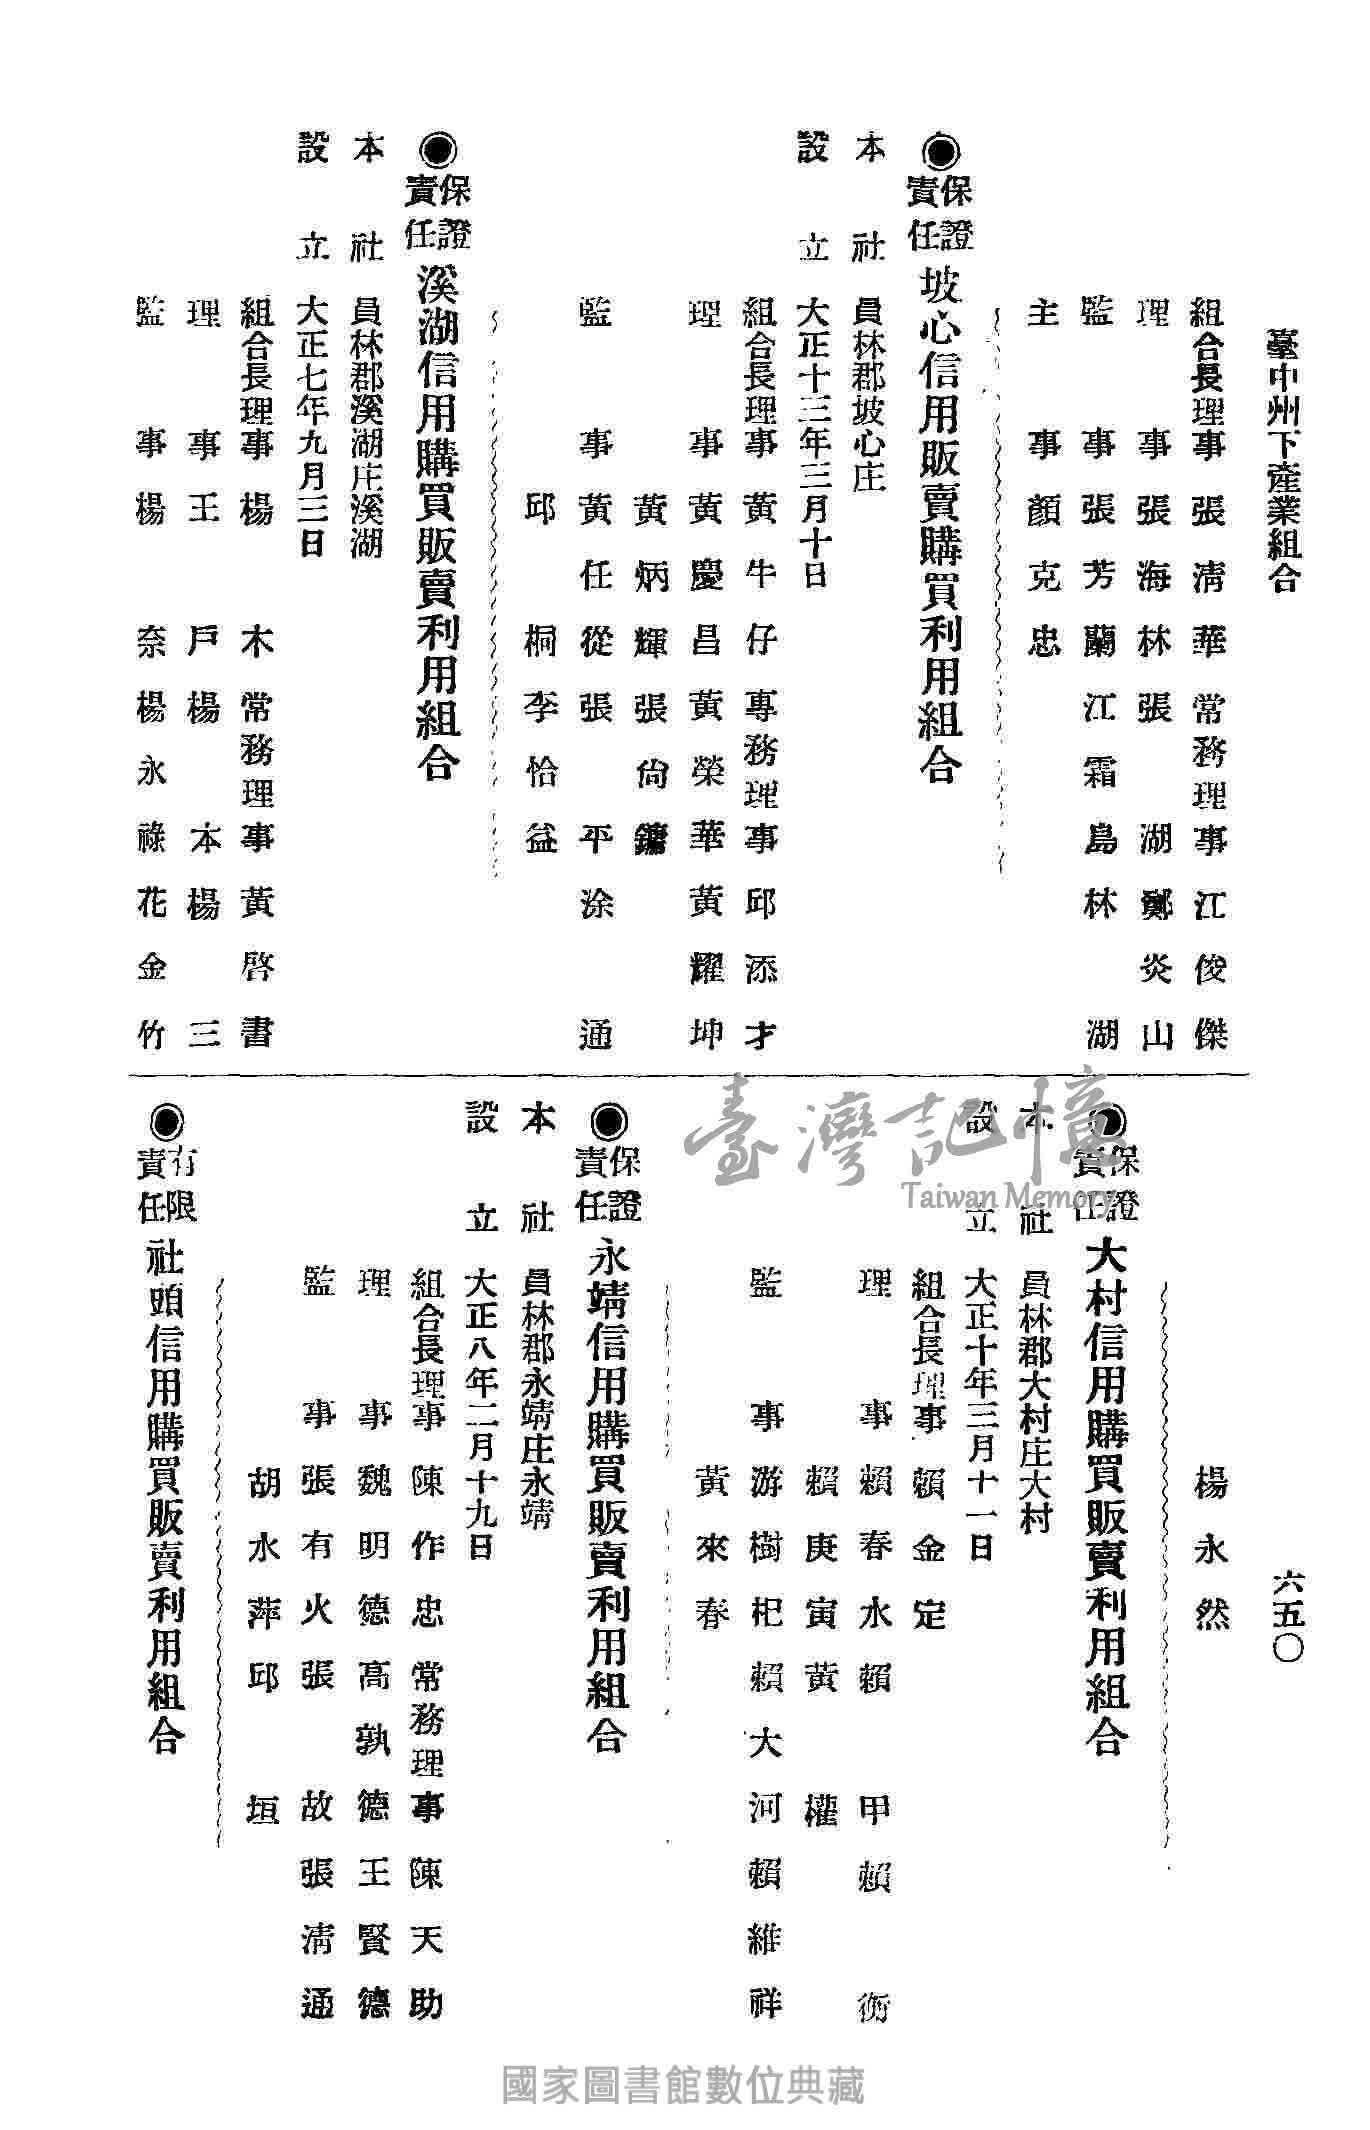 臺中州下產業組合
六五〇
組合長理事 張清華 常務理事 江俊傑
理事 張海林 張湖 鄭炎山
監事 張芳蘭 江霜島 林湖
主事 顏克忠
◉保證責任 坡心信用販賣購買利用組合
本社 員林郡坡心庄
設立 大正十三年三月十日
組合長理事 黃牛仔 專務理事 邱添才
理事 黃慶昌 黃榮華 黃耀坤
黃炳輝 張尙鏞
監事 黃任從 張平 涂通
邱桐 李恰益
◉保證責任 溪湖信用購買販賣利用組合
本社 員林郡溪湖庄溪湖
設立 大正七年九月三日
組合長理事 楊木 常務理事 黃啓書
理事 王戶 楊本 楊三
監事 楊奈 楊永祿 花金竹
楊永然
◉保證責任 大村信用購買販賣利用組合
本社 員林郡大村庄大村
設立 大正十年三月十一日
組合長理事 賴金定
理事 賴春水 賴甲 賴衡
賴庚寅 黃權
監事 游樹杞 賴大河 賴維祥
黃來春
◉保證責任 永靖信用購買販賣利用組合
本社 員林郡永靖庄永靖
設立 大正八年二月十九日
組合長理事 陳作忠 常務理事 陳天助
理事 魏明德 高孰德 王賢德
監事 張有火 張故 張清通
胡水萍 邱垣
◉有限責任 社頭信用購買販賣利用組合
臺灣記憶
Taiwan Memory
國家圖書館數位典藏